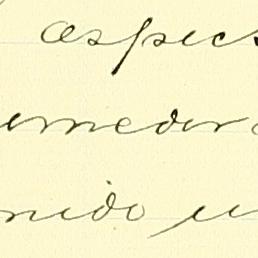 aspec
emedor
nido u